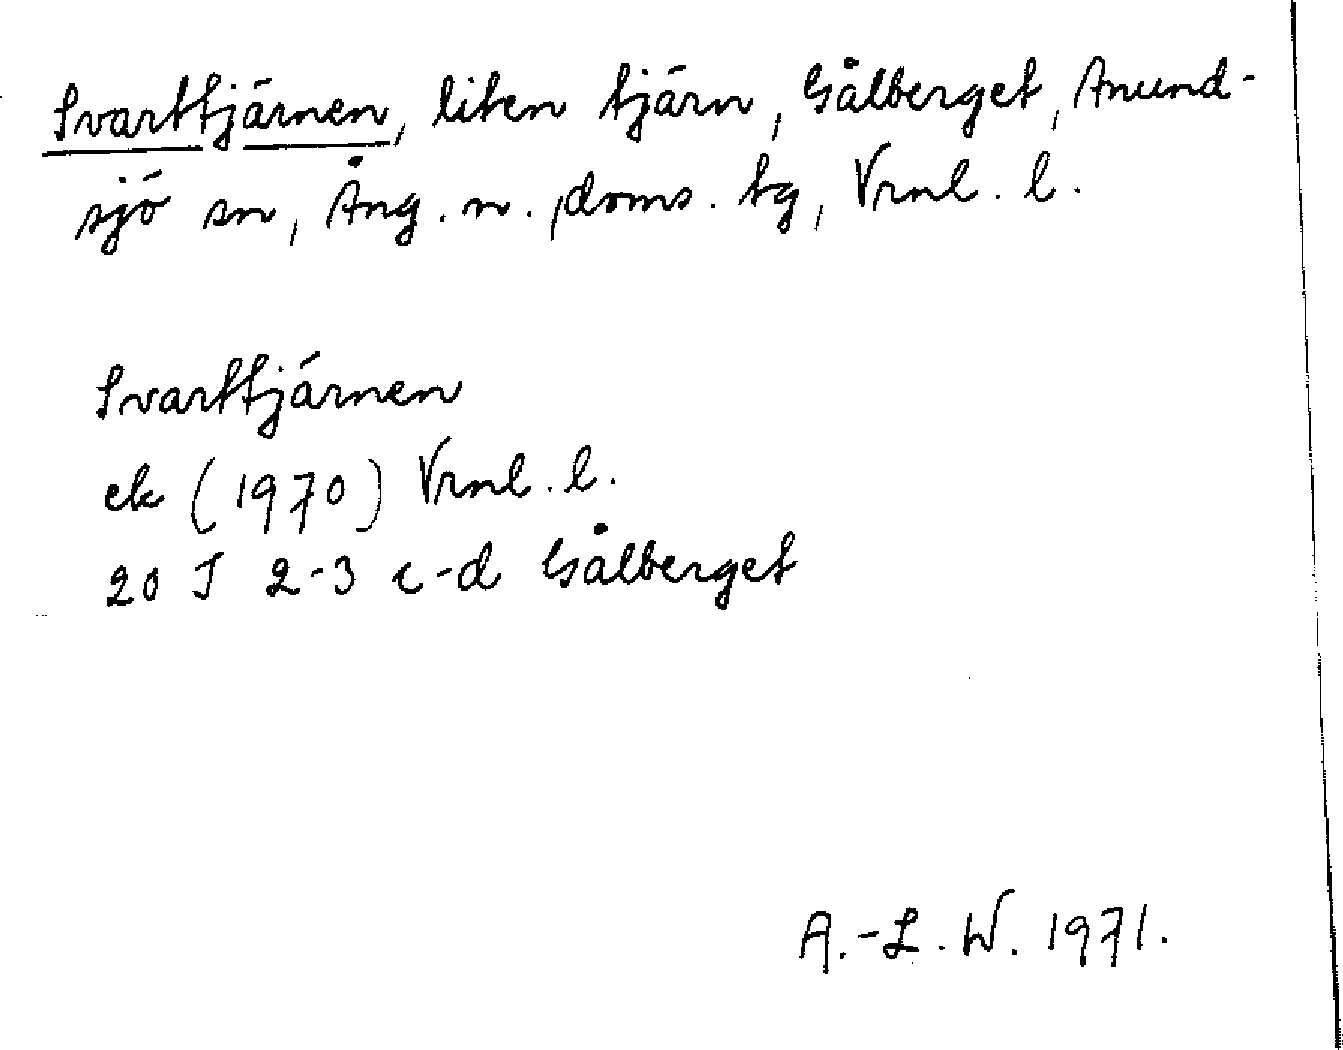 Svarttjärnen, liten tjärn, Gålberget, Anund-
sjö sn, Ång. n. doms. tg, Vrnl. l.
Svarttjärnen
ek (1970) Vrnl. l.
20 J 2-3 c-d Gålberget
A.-L. W. 1971.